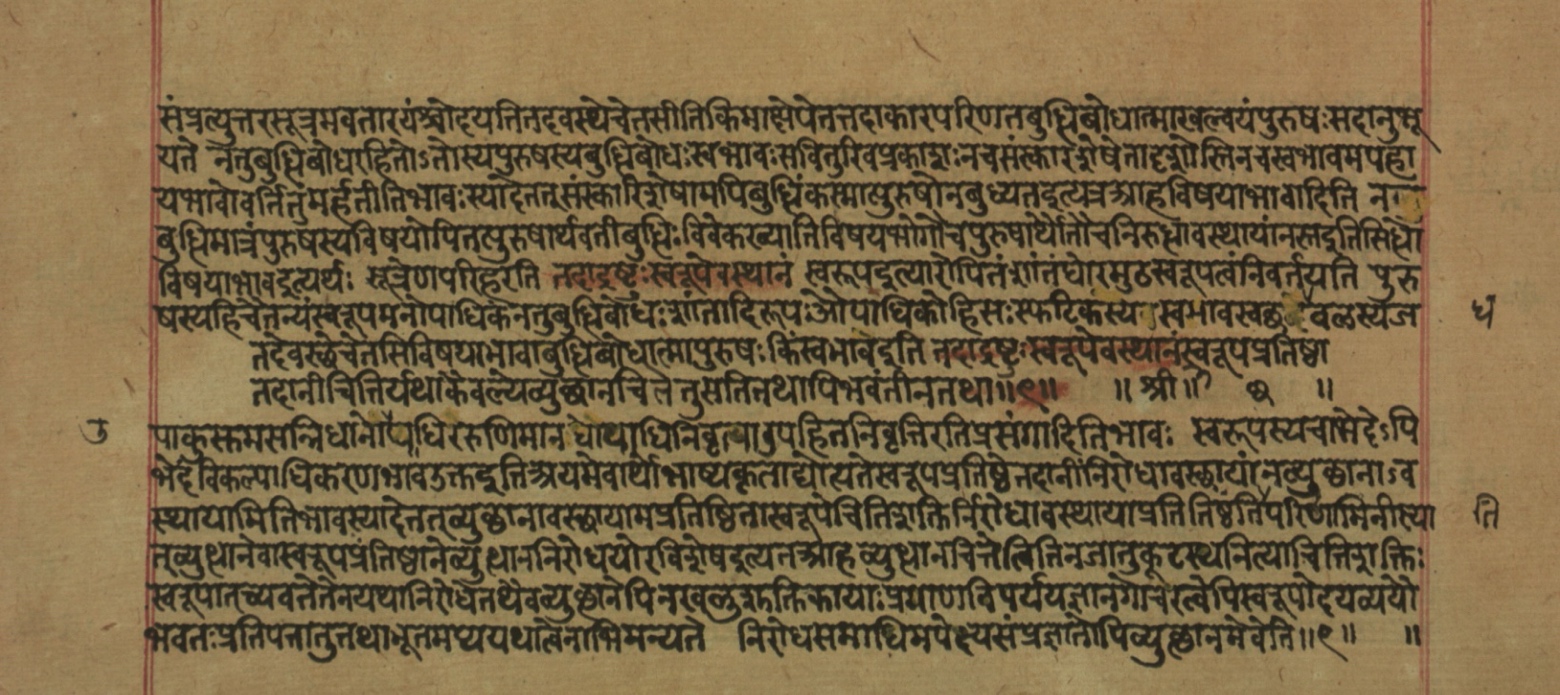 संप्रत्युत्तरसूत्रमवतारयंश्चोदयतितदवस्थेचेतसीतिकिमाक्षेपेतत्तदाकारपरिणतबुद्धिबोधात्माखल्वयंपुरुषःसदानुभू
यते नतुबुद्धिबोधरहितोऽतोस्यपुरुषस्यबुद्धिबोधःस्वभावःसवितुरिवप्रकाशःनचसंस्कारशेषेतादृशोस्तिनचस्वभावमपहा
यभावोवर्तितुमर्हतीतिभावःस्यादेतत्संस्कारशेषामपिबुद्धिंकस्मात्पुरुषोनबुध्यतइत्यत्रआहविषयाभावादिति न
बुद्धिमात्रंपुरुषस्यविषयोपितुपुरुषार्थवतीबुद्धिःविवेकख्यातिविषयभोगौचपुरुषार्थौतौचनिरुद्धावस्थायांनस्तइतिसिद्धो
विषयाभावइत्यर्थः सूत्रेणपरिहरति तदाद्रष्टुःस्वरूपेवस्थानं स्वरूपइत्यारोपितंशांतंघोरमुढस्वरूपत्वंनिवर्तयति पुरु
षस्यहिचैतन्यंस्वरूपमनोपाधिकंनतुबुद्धिबोधःशांतादिरूपःओपाधिकोहिसःस्फटिकस्येवस्वभावस्वछधवळस्यज
तदेवस्छेचेतसिविषयाभावाबुद्धिबोधात्मापुरुषःकिंस्वभावेइति तदाद्रष्टुःस्वरूपेवस्थानंस्वरूपप्रतिष्ठा
तदानीचितिर्यथाकैवल्येव्युछानचित्तेतुसतितथापिभवंतीनतथा॥९॥ ॥श्री॥ छ ॥
पाकुसुमसन्निधानोपाधिररुणिमानचोपाधिनिवृत्यावुपहितनिवृत्तिरतिप्रसंगादितिभावः स्वरूपस्यचाभेदेऽपि
भेदंविकल्पाधिकरणभावउक्तइतिअयमेवार्थोभाष्यकृताद्योत्यतेस्वरूपप्रतिष्ठेतदानींनिरोधावस्छायांनव्युछानाऽव
स्थायामितिभावस्यादेतत्व्युछानावस्छायामप्रतिष्ठितास्वरूपेचितिशक्तिर्निरोधावस्थायाप्रतितिष्ठतिपरिणामिनीस्या
त्व्युथानेवास्वरूपप्रतिष्ठानेव्युथाननिरोधयोरविशेषइत्यतआहव्युथानचित्तेत्वितिनजातुकूटस्थनित्याचितिशक्तिः
स्वरूपातच्यवतेतेनयथानिरोधेतथैवव्युछानेपिनखलुशुक्तिकायाःप्रमाणविपर्ययज्ञानगोचरत्वेपिस्वरूपोदयव्ययौ
भवतःप्रतिपत्तातुतथाभूतमप्ययथात्वेनाभिमन्यते निरोधसमाधिमपेक्ष्यसंप्रज्ञातोपिव्युत्छानमेवेति॥९॥ ॥